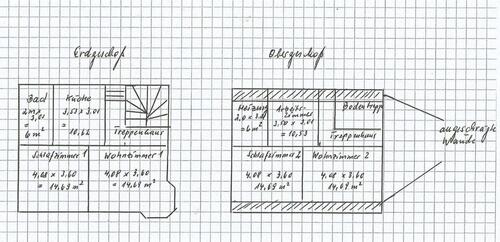 Erdgeschoß
Obergeschoß
Bad
2m x
3,01
=
6 m²
Küche
3,53 x 3,01
=
10,62
Treppenhaus
Schlafzimmer 1
4,08 x 3,60
= 14,69 m²
Wohnzimmer 1
4,08 x 3,60
= 14,69 m²
Heizung
2,0 x 3,01
= 6 m²
Arbeits-
zimmer
3,50 x 3,01
= 10,53
Bodentreppe
Treppenhaus
Schlafzimmer 2
4,08 x 3,60
14,69 m²
Wohnzimmer 2
4,08 x 3,60
14,69 m²
angeschrägte
Wände